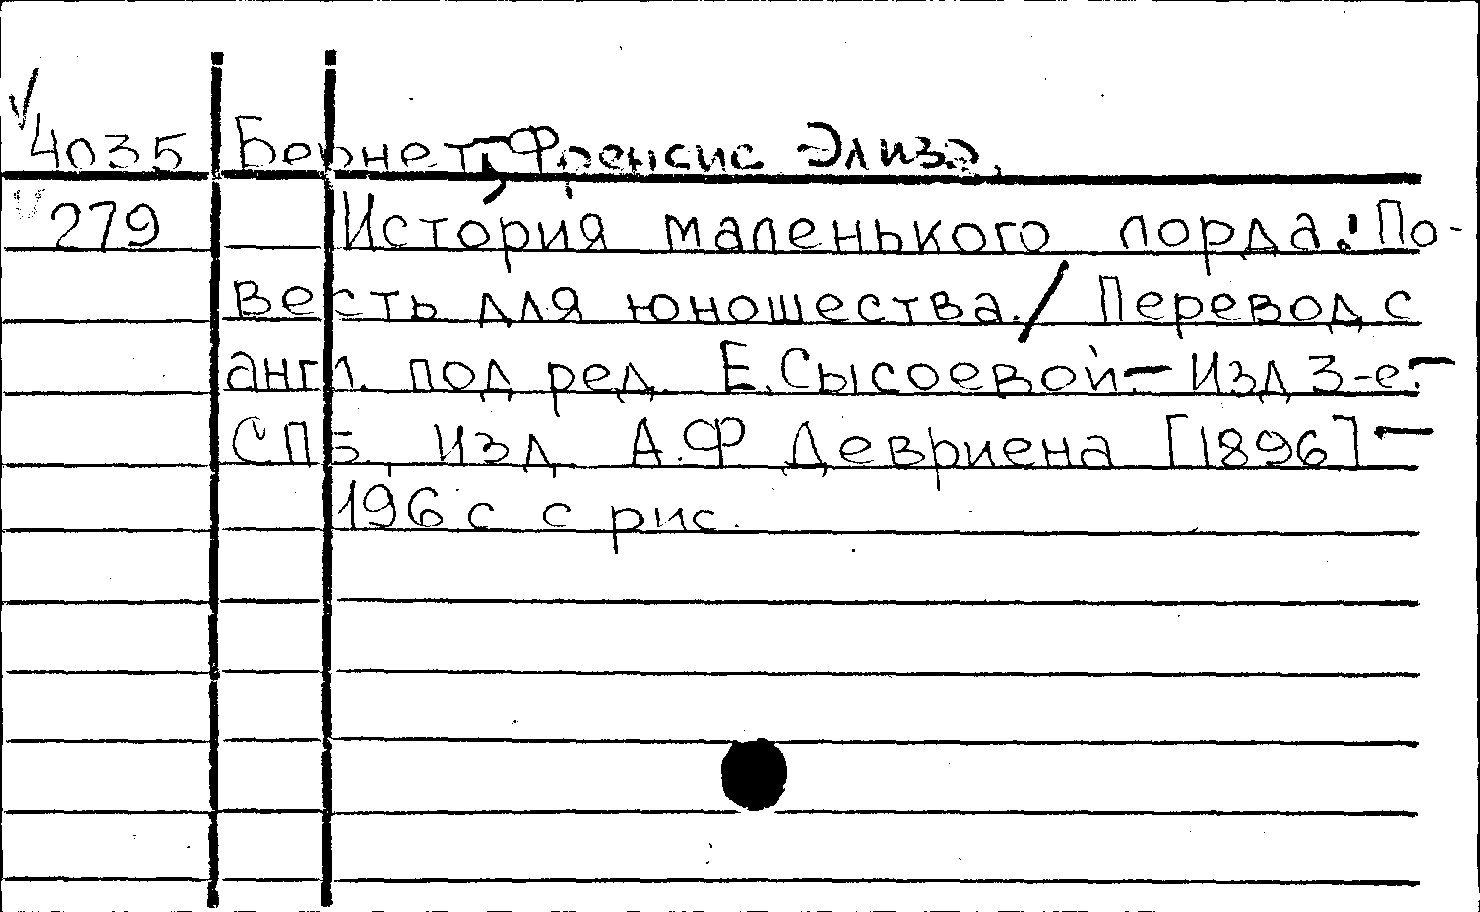 4035 Бернет, Френсис Элиза.
279 История маленького лорда: По-
весть для юношества. / Перевод с
англ. под ред. Е. Сысоевой. — Изд 3-е. —
СПБ. Изд. А.Ф Девриена [1896] —
196 с с рис.